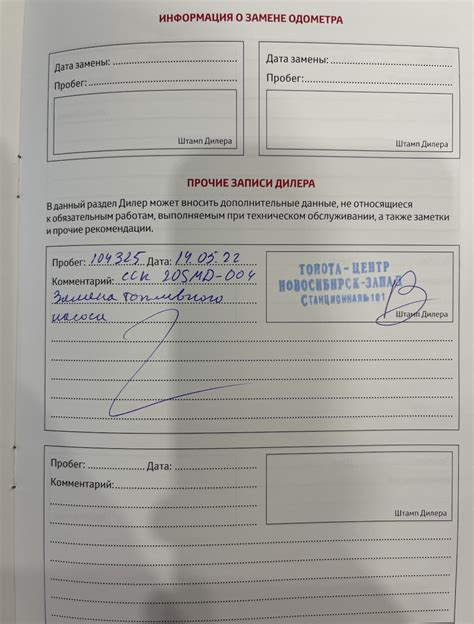 ИНФОРМАЦИЯ О ЗАМЕНЕ ОДОМЕТРА
Дата замены:
Пробег:
Штамп Дилера
Дата замены:
Пробег:
Штамп Дилера
ПРОЧИЕ ЗАПИСИ ДИЛЕРА
В данный раздел Дилер может вносить дополнительные данные, не относящиеся
к обязательным работам, выполняемым при техническом обслуживании, а также заметки
и прочие рекомендации.
Пробег: 104325 Дата: 19.05.22
Комментарий: ССК 20SMD-004
Замена топливного
насоса
ТОЙОТА-ЦЕНТР
НОВОСИБИРСК-ЗАПАД
СТАНЦИОННАЯ 101
Штамп Дилера
Пробег: Дата:
Комментарий:
Штамп Дилера